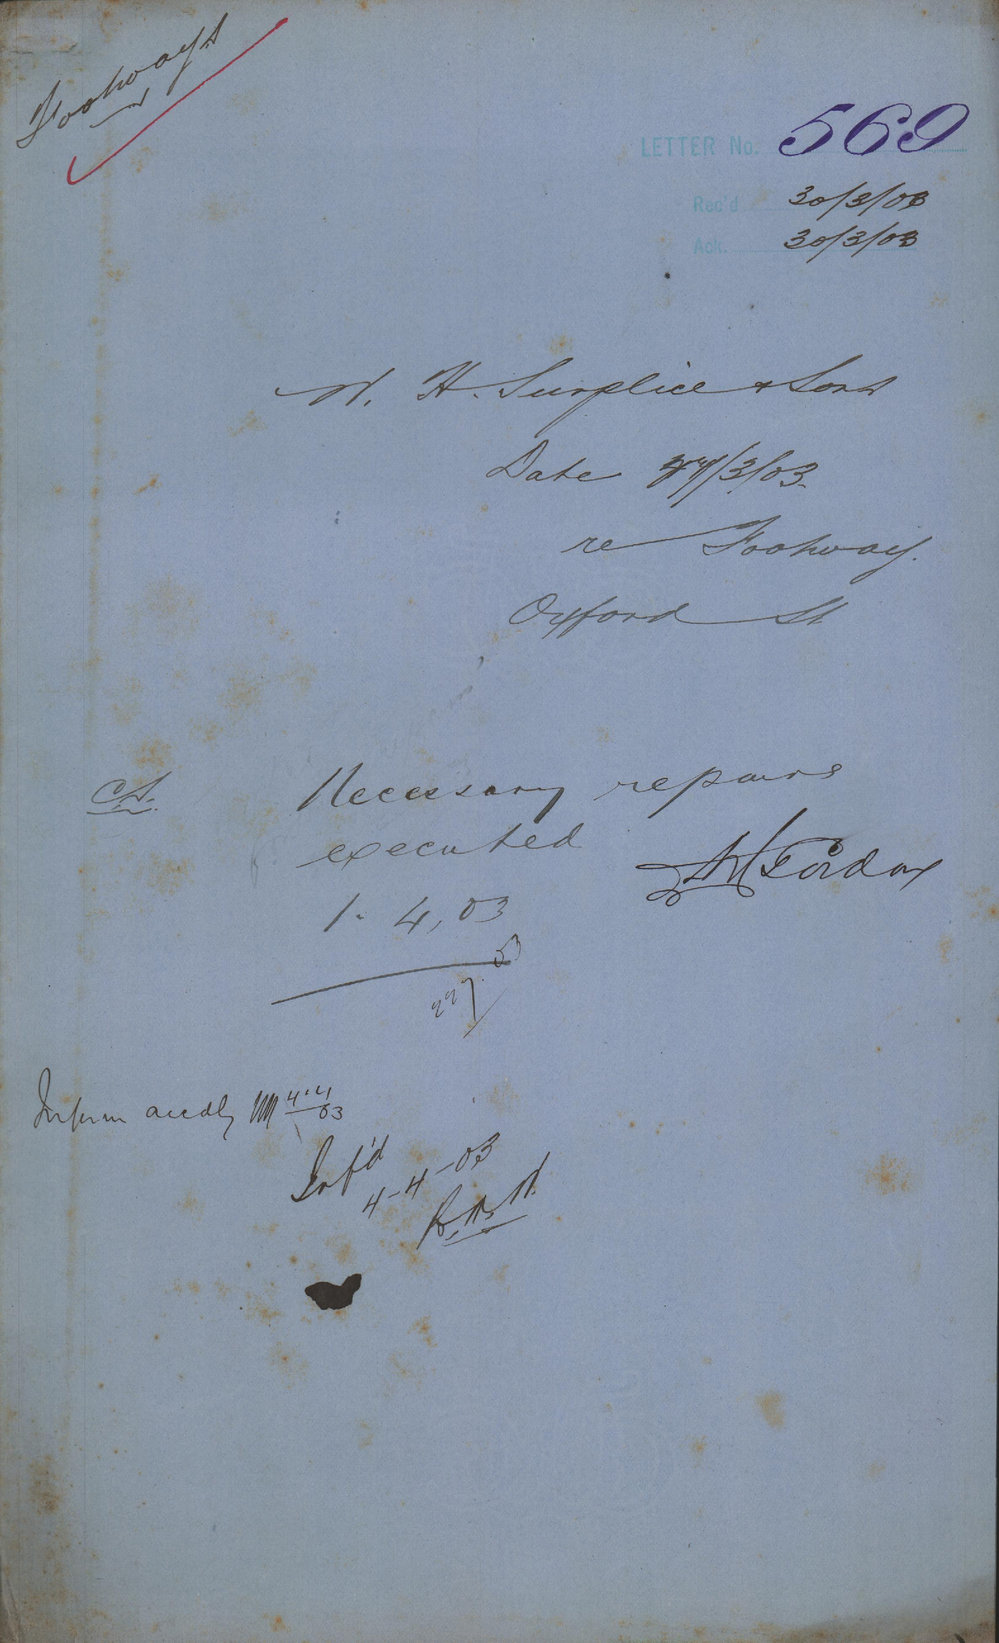 Footways
LETTER No. 569
Rec'd 30/3/03
Ack. 30/3/03
W. H. Surplice & Sons
Date 27/3/03.
re Footway.
Oxford St
C.S.
Necessary repairs
executed
1. 4, 03
Inform accdly 4.4.03
Inf'd
4-4-03